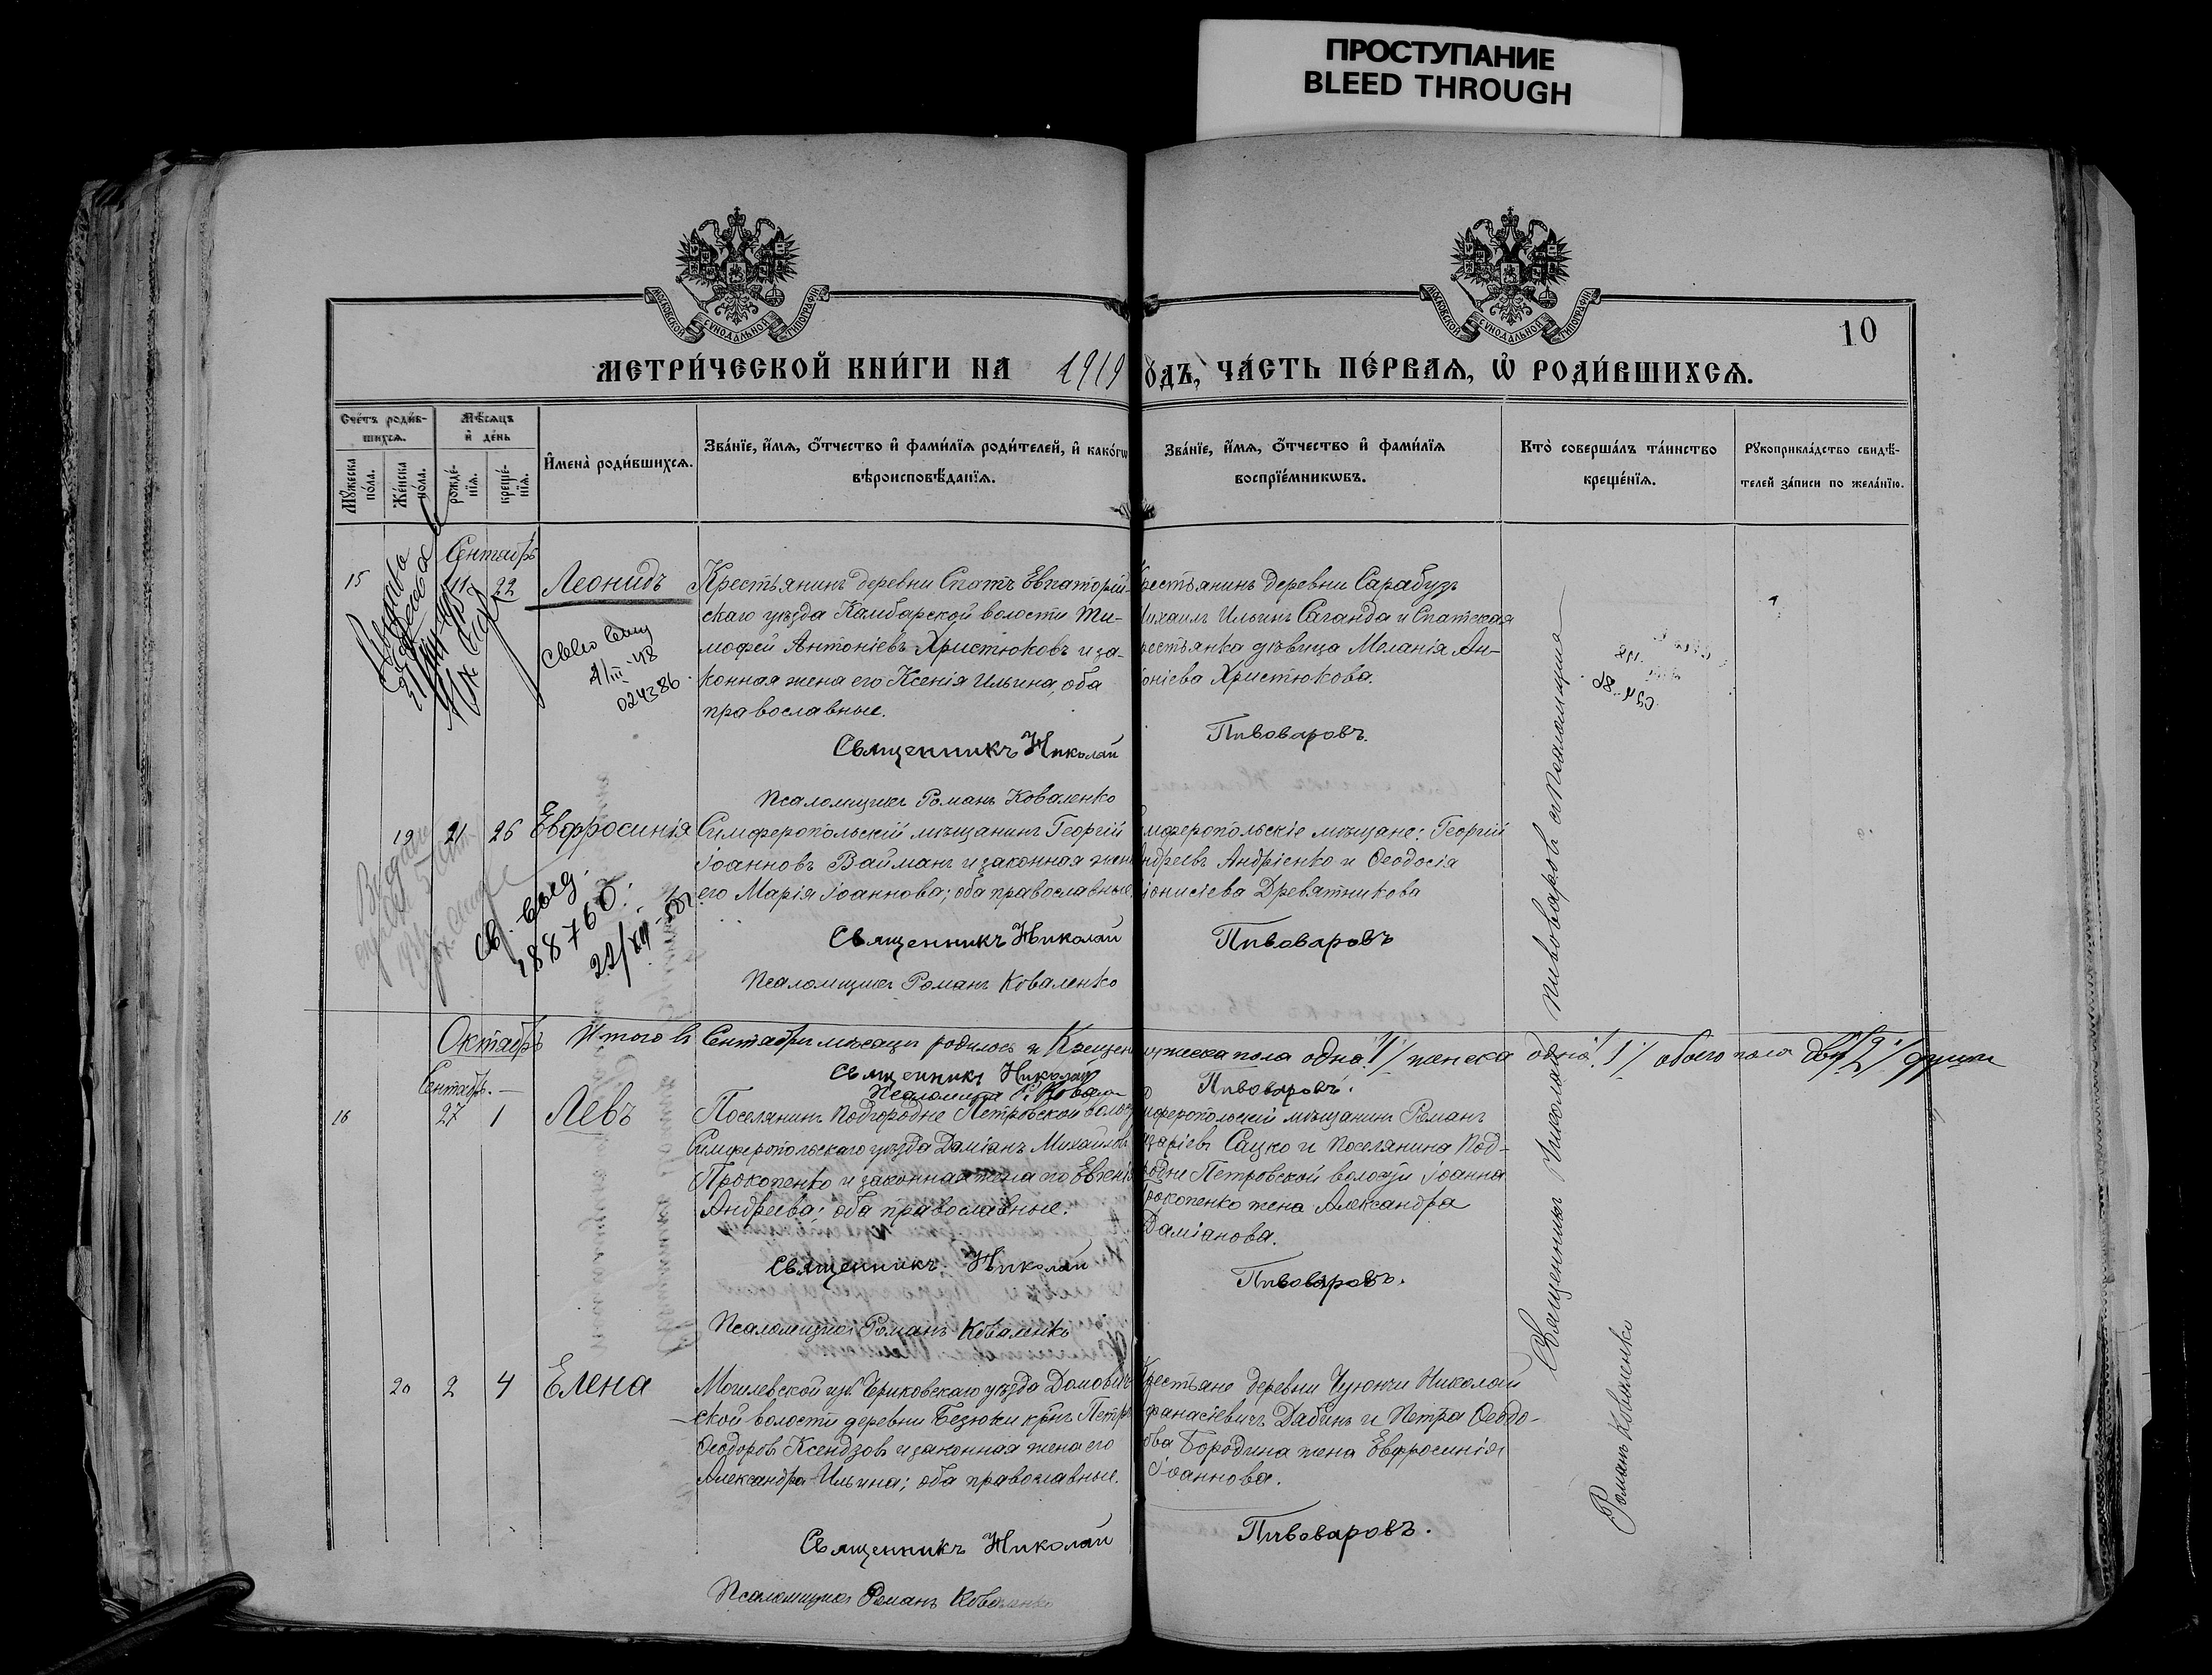 ПРОСТУПАНИЕ
BLEED THROUGH
МОСКОВСКОЙ СѴНОДАЛЬНОЙ ТИПОГРАФІИ
МОСКОВСКОЙ СѴНОДАЛЬНОЙ ТИПОГРАФІИ
10
МЕТРИ́ЧЕСКОЙ КНИ́ГИ НА 1919
ꙋДЪ, ЧА́СТЬ ПЕ́РВАѦ, Ѡ҆ РОДИ́ВШИХСѦ.
Сче́тъ роди́в-
шихсѧ.
Мꙋ́жеска по́ла.
Же́нска по́ла.
Мѣ́сѧцъ
и҆ де́нь
рожде́-
нїѧ.
креще́-
нїѧ.
И҆мена̀ роди́вшихсѧ.
Зва́нїе, и҆́мѧ, ѻ҆́тчество и҆ фами́лїѧ роди́телей, и҆ како́гѡ
вѣроисповѣ́данїѧ.
Зва́нїе, и҆́мѧ, ѻ҆́тчество и҆ фами́лїѧ
воспрїе́мникѡвъ.
Кто̀ соверша́лъ та́инство
креще́нїѧ.
Рꙋкоприкла́дство свидѣ́-
телей за́писи по жела́нїю.
Сентябрь
15 11 22 Леонидъ
Крестьянинъ деревни Спатъ Евпаторій-
скаго уѣзда Камбарской волости Ти-
мофей Антоніевъ Христюковъ и за-
конная жена его Ксенія Ильина, оба
православные.
Священникъ Николай
Псаломщикъ Романъ Коваленко
рестьянинъ деревни Сарабузъ
ихаилъ Ильинъ Саганда и Спатская
рестьянка дѣвица Меланія Ан-
оніева Христюкова.
Пивоваровъ.
4/III 48
024386.
19 21 26 Евфросинія
Симферопольскій мѣщанинъ Георгій
Іоанновъ Вайманъ и законная жена
его Марія Іоаннова; оба православные.
Священникъ Николай
Псаломщикъ Романъ Коваленко
имферопольскіе мѣщане: Георгій
Андреевъ Андріенко и Ѳеодосія
іонисіева Древятникова
Пивоваровъ
188760
Октябрь Итого въ Сентябрѣ мѣсяцѣ родилось и Крещено
мужеска пола одна /1/ женска одна /1/ обоего пола двѣ /2/ души
Священникъ Николай
Пивоваровъ.
Сентябр. —
16 27 1 Левъ
Поселянинъ Подгородне Петровской волости
Симферопольскаго уѣзда Даміанъ Михайловъ
Прокопенко и законная жена его Евгенія
Андреева; оба православные.
Священникъ Николай
Псаломщикъ Романъ Коваленко
имферопольскій мѣщанинъ Романъ
азаріевъ Сацко и поселянина Под-
родне Петровской волости Іоанна
рокопенко жена Александра
Даміанова.
Пивоваровъ.
20 2 4 Елена
Могилевской губ. Чериковскаго уѣзда Домович-
ской волости деревни Безюки крнъ Петръ
Ѳеодоровъ Ксендзовъ и законная жена его
Александра Ильина; оба православные.
Священникъ Николай
Псаломщикъ Романъ Коваленко
Крестьяне деревни Чуюнчи Николай
фанасіевичъ Дабинъ и Петра Ѳеодо-
ова Бородина жена Евфросинія
Іоаннова.
Пивоваровъ.
Священникъ Николай Пивоваровъ съ псаломщикомъ
Романъ Коваленко